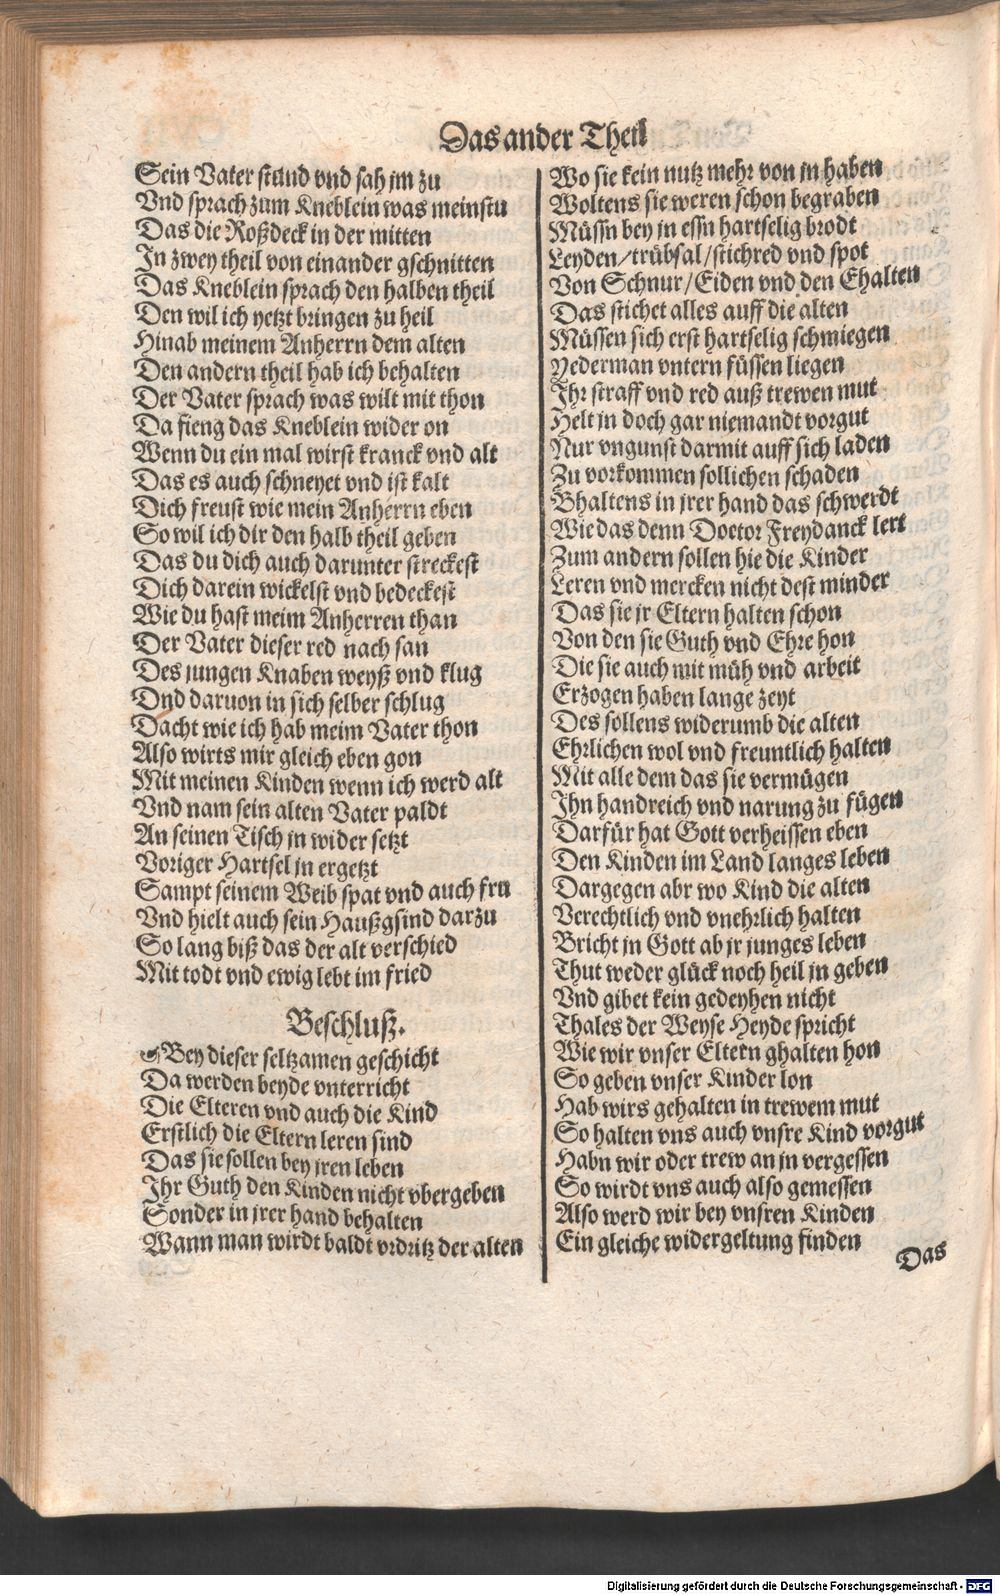 Das ander Theil
Sein Vater stund vnd sah jm zu
Vnd sprach zum Kneblein was meinstu
Das die Roßdeck in der mitten
In zwey theil von einander gschnitten
Das Kneblein sprach den halben theil
Den wil ich yetzt bringen zu heil
Hinab meinem Anherrn dem alten
Den andern theil hab ich behalten
Der Vater sprach was wilt mit thon
Da fieng das Kneblein wider on
Wenn du ein mal wirst kranck vnd alt
Das es auch schneyet vnd ist kalt
Dich freust wie mein Anherrn eben
So wil ich dir den halb theil geben
Das du dich auch darunter streckest
Dich darein wickelst vnd bedeckest
Wie du hast meim Anherren than
Der Vater dieser red nach san
Des jungen Knaben weyß vnd klug
Vnd daruon in sich selber schlug
Dacht wie ich hab meim Vater thon
Also wirts mir gleich eben gon
Mit meinen Kinden wenn ich werd alt
Vnd nam sein alten Vater paldt
An seinen Tisch jn wider setzt
Voriger Hartsel jn ergetzt
Sampt seinem Weib spat vnd auch fru
Vnd hielt auch sein Haußgsind darzu
So lang biß das der alt verschied
Mit todt vnd ewig lebt im fried
Beschluß.
Bey dieser seltzamen geschicht
Da werden beyde vnterricht
Die Elteren vnd auch die Kind
Erstlich die Eltern leren sind
Das sie sollen bey jren leben
Ihr Guth den Kinden nicht vbergeben
Sonder in jrer hand behalten
Wann man wirdt baldt vrdritz der alten
Wo sie kein nutz mehr von jn haben
Woltens sie weren schon begraben
Müssn bey jn essn hartselig brodt
Leyden/trübsal/stichred vnd spot
Von Schnur/Eiden vnd den Ehalten
Das stichet alles auff die alten
Müssen sich erst hartselig schmiegen
Yederman vntern füssen liegen
Ihr straff vnd red auß trewen mut
Helt jn doch gar niemandt vorgut
Nur vngunst darmit auff sich laden
Zu vorkommen sollichen schaden
Bhaltens in jrer hand das schwerdt
Wie das denn Doctor Freydanck lert
Zum andern sollen hie die Kinder
Leren vnd mercken nicht dest minder
Das sie jr Eltern halten schon
Von den sie Guth vnd Ehre hon
Die sie auch mit müh vnd arbeit
Erzogen haben lange zeyt
Des sollens widerumb die alten
Ehrlichen wol vnd freuntlich halten
Mit alle dem das sie vermügen
Ihn handreich vnd narung zu fügen
Darfür hat Gott verheissen eben
Den Kinden im Land langes leben
Dargegen abr wo Kind die alten
Verechtlich vnd vnehrlich halten
Bricht jn Gott ab jr junges leben
Thut weder glück noch heil jn geben
Vnd gibet kein gedeyhen nicht
Thales der Weyse Heyde spricht
Wie wir vnser Eltern ghalten hon
So geben vnser Kinder lon
Hab wirs gehalten in trewem mut
So halten vns auch vnsre Kind vorgut
Habn wir oder trew an jn vergessen
So wirdt vns auch also gemessen
Also werd wir bey vnsren Kinden
Ein gleiche widergeltung finden
Das
Digitalisierung gefördert durch die Deutsche Forschungsgemeinschaft - DFG